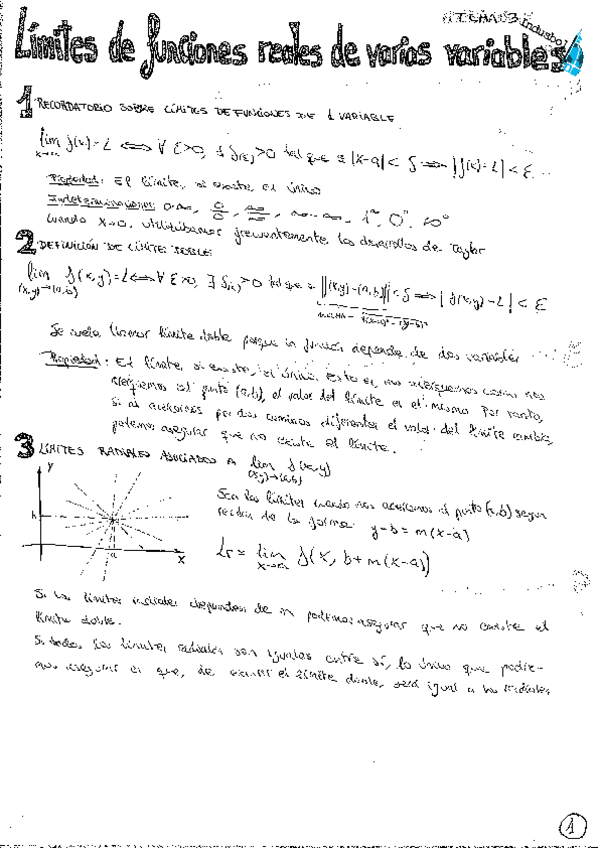 TEMA 3
Límites de funciones reales de varias variables
1 RECORDATORIO SOBRE LÍMITES DE FUNCIONES DE 1 VARIABLE
lim f(x)=L ⟺ ∀ ε>0, ∃ δ(ε)>0 tal que si |x-a|< δ ⟹ |f(x)-L|< ε
x→a
Propiedad: El límite, si existe es único
Indeterminaciones: 0·∞, 0/0, ∞/∞, ∞-∞, 1^∞, 0^0, ∞^0
Cuando x→0, utilizábamos frecuentemente los desarrollos de Taylor
2 DEFINICIÓN DE LÍMITE DOBLE
lim f(x,y)=L⟺∀ ε>0, ∃ δ(ε)>0 tal que si ||(x,y)-(a,b)||< δ ⟹ | f(x,y)-L|< ε
(x,y)→(a,b)
Se suele llamar límite doble porque la función depende de dos variables
Propiedad: El límite, si existe, es único. Esto es, no
acerquemos al punto (a,b), el valor del límite es el mismo. Por tanto,
si al acercarnos por dos caminos diferentes el valor del límite cambia,
podemos asegurar que no existe el límite.
3 LÍMITES RADIALES ASOCIADOS A lim f(x,y)
(x,y)→(a,b)
y
b
a
x
Son los límites cuando nos acercamos al punto (a,b) según
rectas de la forma y-b = m(x-a)
Lr = lim f(x, b+m(x-a))
x→a
Si los límites radiales dependen de m podemos asegurar que no existe el
límite doble.
Si todos los límites radiales son iguales entre sí, lo único que pode-
mos asegurar es que, de existir el límite doble, será igual a los radiales
1